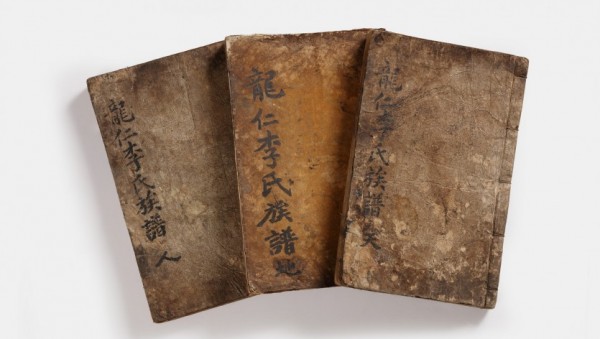 龍仁李氏族譜 人
龍仁李氏族譜 地
龍仁李氏族譜 天